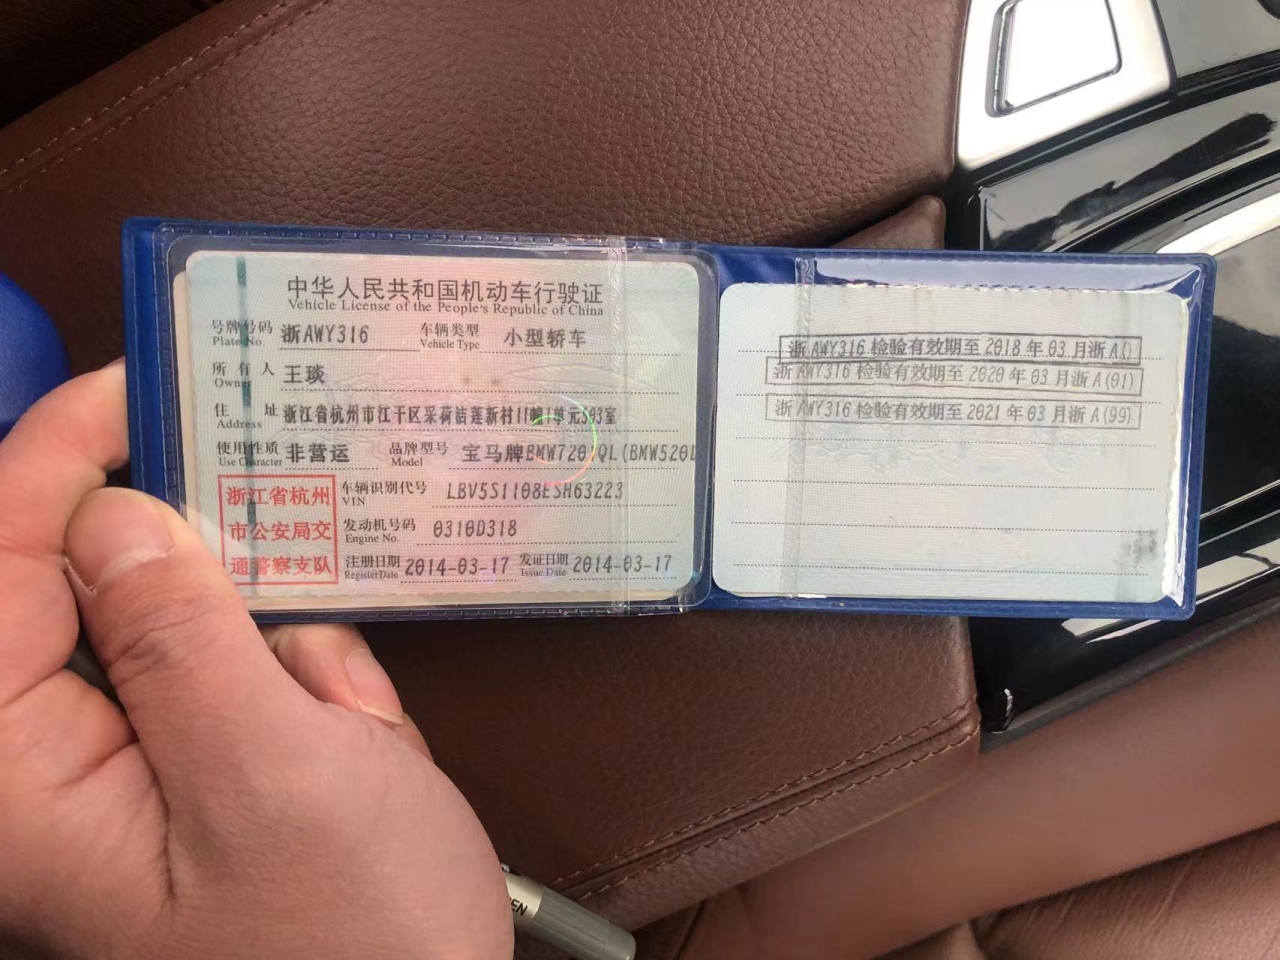 中华人民共和国机动车行驶证
Vehicle License of the People's Republic of China
号牌号码 Plate No. 浙AWY316 车辆类型 Vehicle Type 小型轿车
所有人 Owner 王琰
住址 Address 浙江省杭州市江干区采荷洁莲新村11幢1单元503室
使用性质 Use Character 非营运 品牌型号 Model 宝马牌BMW7201QL(BMW520L
浙江省杭州市公安局交通警察支队
车辆识别代号 VIN LBV5S1108ESH63223
发动机号码 Engine No. 0310D318
注册日期 Register Date 2014-03-17 发证日期 Issue Date 2014-03-17
浙AWY316检验有效期至2018年03月浙A()
浙AWY316检验有效期至2020年03月浙A(01)
浙AWY316检验有效期至2021年03月浙A(99)
EN